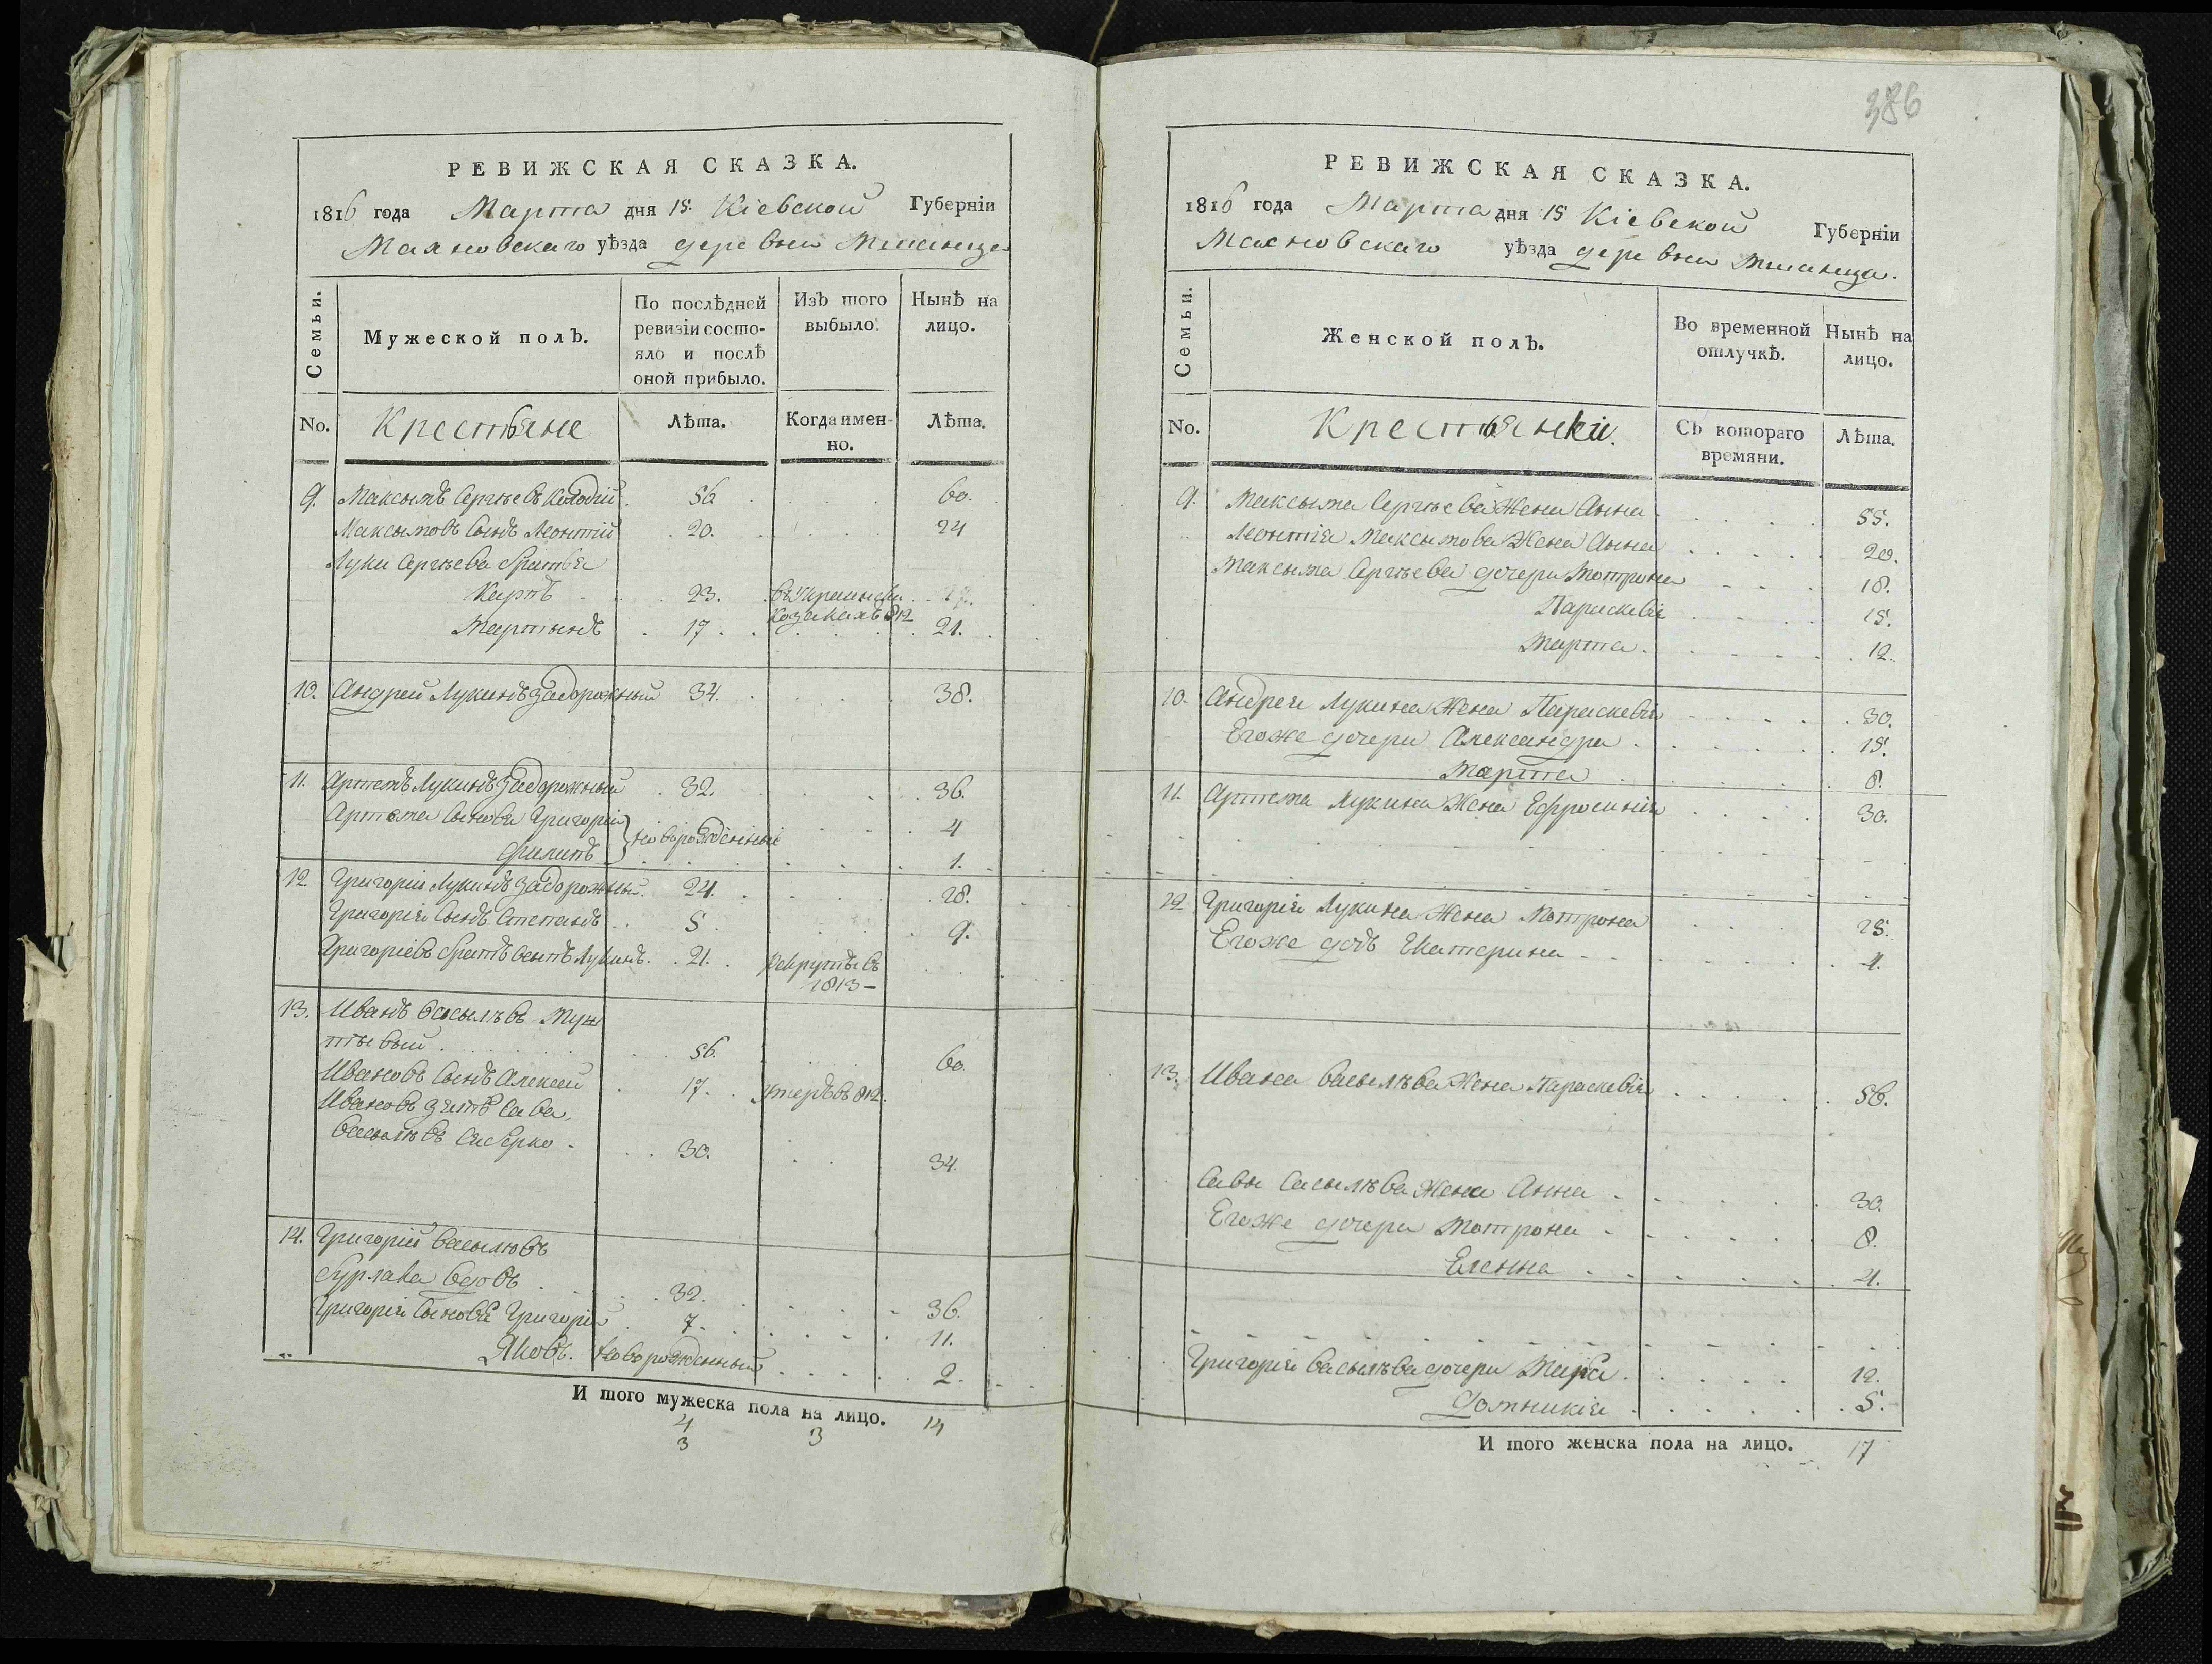 РЕВИЖСКАЯ СКАЗКА.
1816 года Марта дня 15. Кіевской Губерніи
уѣзда деревни
Семьи.
Мужеской полъ.
По послѣдней ревизіи состояло и послѣ оной прибыло.
Изъ того выбыло.
Нынѣ на лицо.
No. Крестьяне Лѣта. Когда именно. Лѣта.
9. Максымъ Сергѣевъ Колодій 56 60.
Максымовъ Сынъ Леонтій 20. 24
Луки Сергѣева братья
Карпъ 23. въ Украински
козакахъ 812
Мартынъ 17. 21.
10. Андрей Лукинъ Задорожный 34. 38.
11. Артемъ Лукинъ Задорожный 32. 36.
Артема Сыновья Григорій } новорожденныи 4
Филипъ 1.
12 Григорій Лукинъ Задорожный. 24. 28.
Григорія Сынъ Степанъ 5 9.
Григоріевъ братъ Лукинъ. 21. Рекрутъ въ
1813-
13. Иванъ Васылѣвъ
56. 60.
Ивановъ Сынъ Алексей 17. умеръ в 812.
Ивановъ зять Сава
Васылѣвъ 30. 34.
14. Григорій Васылювъ
Бурлака вдовъ 32. 36.
Григорія Сыновья Григорій 7. 11.
Яковъ. Новорожденный 2.
И того мужеска пола на лицо. 14
4 3
3
386
РЕВИЖСКАЯ СКАЗКА.
1816 года Марта дня 15 Кіевской Губерніи
уѣзда деревни
Семьи.
Женской полъ.
Во временной отлучкѣ.
Нынѣ на лицо.
No. Крестьянки. Съ котораго времяни. Лѣта.
9. Максыма Сергѣева Жена Анна 55.
Леонтія Максымова Жена Анна 20.
Максыма Сергѣева дочери Мотрона 18.
Параскевія 15.
Марта. 12.
10. Андрея Лукина Жена Параскевія 30.
Егоже дочери Александра 15.
Марта 8.
11. Артема Лукина Жена Ефросинія 30.
12 Григорія Лукина Жена Мотрона 25.
Егоже дочь Екатерина 4.
13. Ивана Васылѣва Жена Параскевія 56.
Савы Васылѣва Жена Анна 30.
Егоже дочери Мотрона 8.
Еленна 4.
Григорія Васылѣва дочери 12.
Домникія 5.
И того женска пола на лицо. 17